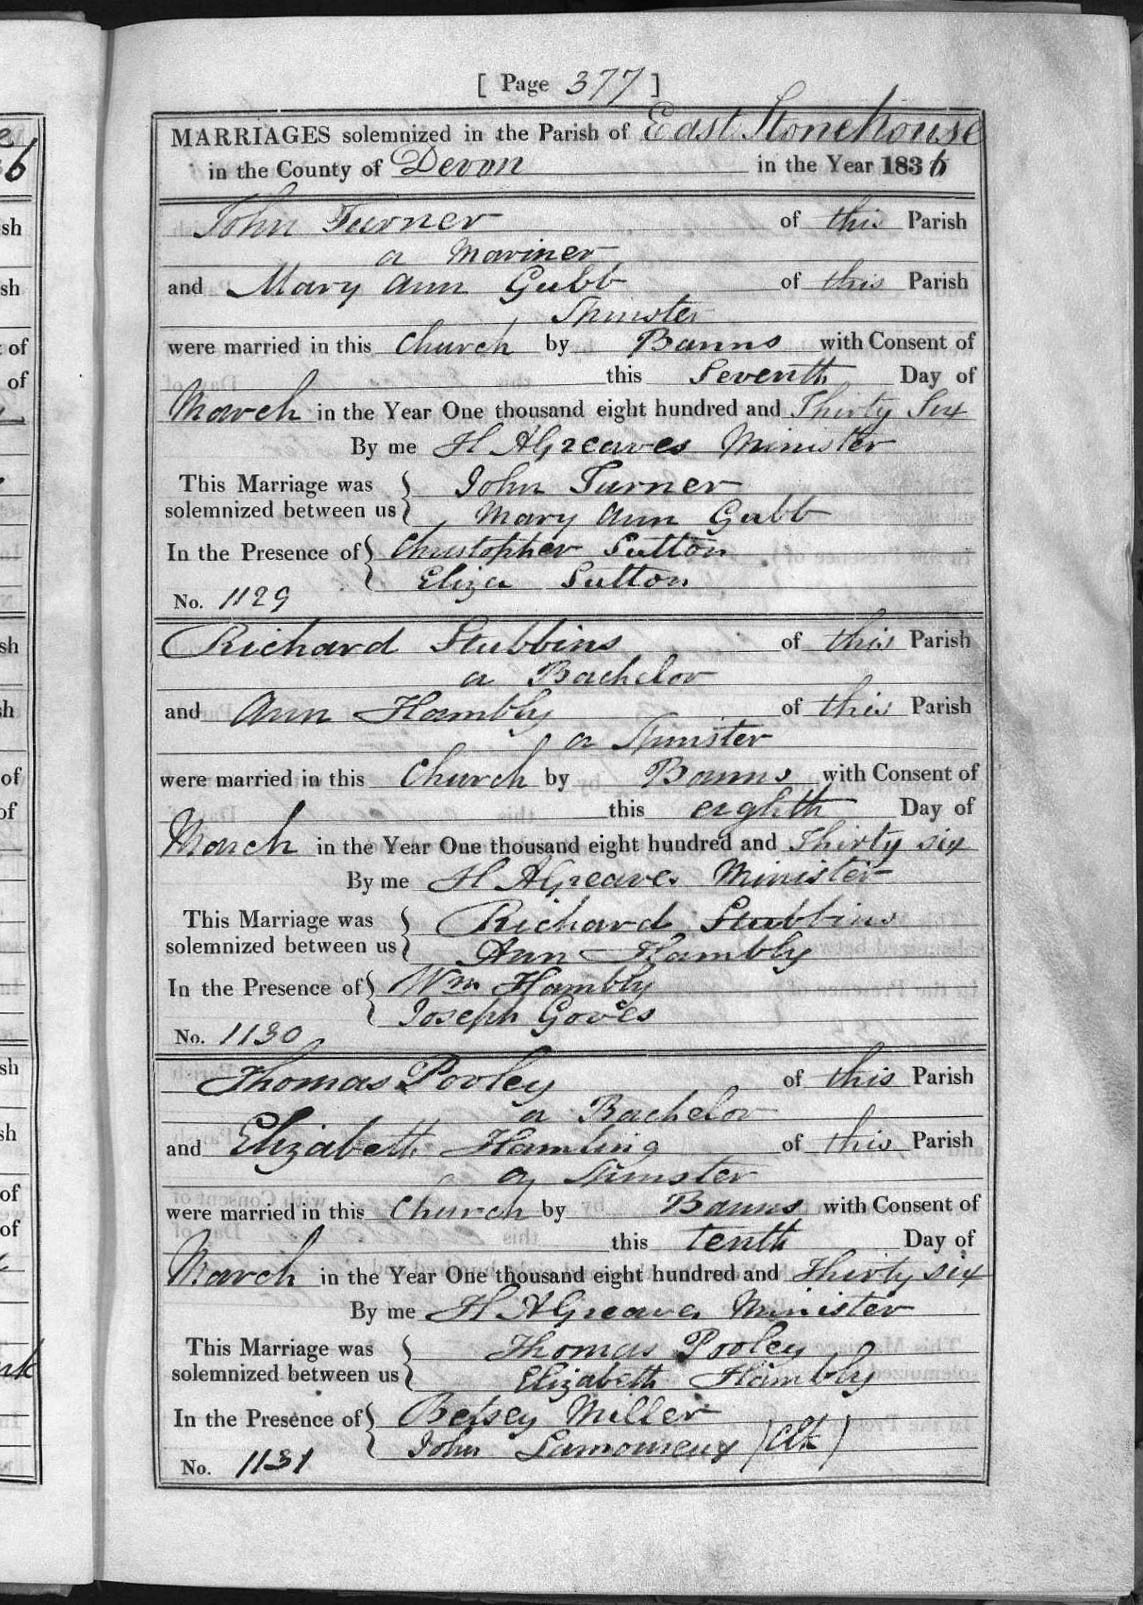 [ Page 377 ]
MARRIAGES solemnized in the Parish of East Stonehouse
in the County of Devon in the Year 1836
John Turner of this Parish
a Mariner
and Mary Ann Gubb of this Parish
Spinster
were married in this Church by Banns with Consent of
this Seventh Day of
March in the Year One thousand eight hundred and Thirty Six
By me H A Greaves Minister
This Marriage was solemnized between us { John Turner
Mary Ann Gubb
In the Presence of { Christopher Sutton
Eliza Sutton
No. 1129
Richard Stubbins of this Parish
a Bachelor
and Ann Hambly of this Parish
a Spinster
were married in this Church by Banns with Consent of
this eighth Day of
March in the Year One thousand eight hundred and Thirty six
By me H A Greaves Minister
This Marriage was solemnized between us { Richard Stubbins
Ann Hambly
In the Presence of { Wm Hambly
Joseph Goves
No. 1130
Thomas Pooley of this Parish
a Bachelor
and Elizabeth Hamling of this Parish
a Spinster
were married in this Church by Banns with Consent of
this tenth Day of
March in the Year One thousand eight hundred and Thirty six
By me H A Greaves Minister
This Marriage was solemnized between us { Thomas Pooley
Elizabeth Hambly
In the Presence of { Betsey Miller
John Lamoureux (Clk)
No. 1131